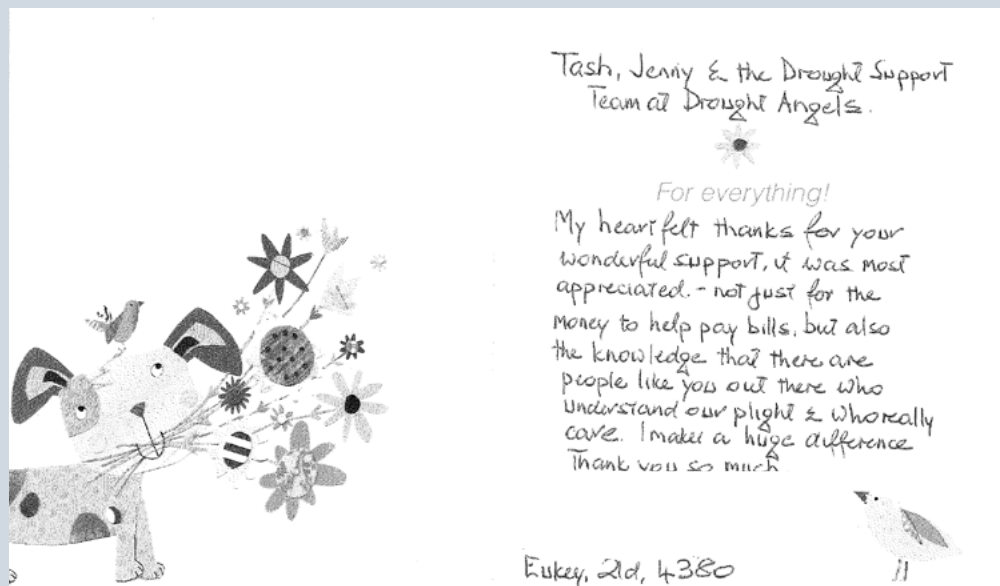 Tash, Jenny & the Drought Support
Team at Drought Angels.
For everything!
My heartfelt thanks for your
wonderful support, it was most
appreciated. - not just for the
money to help pay bills, but also
the knowledge that there are
people like you out there who
understand our plight & who really
care. I makes a huge difference
Thank you so much
Eukey, Qld, 4380